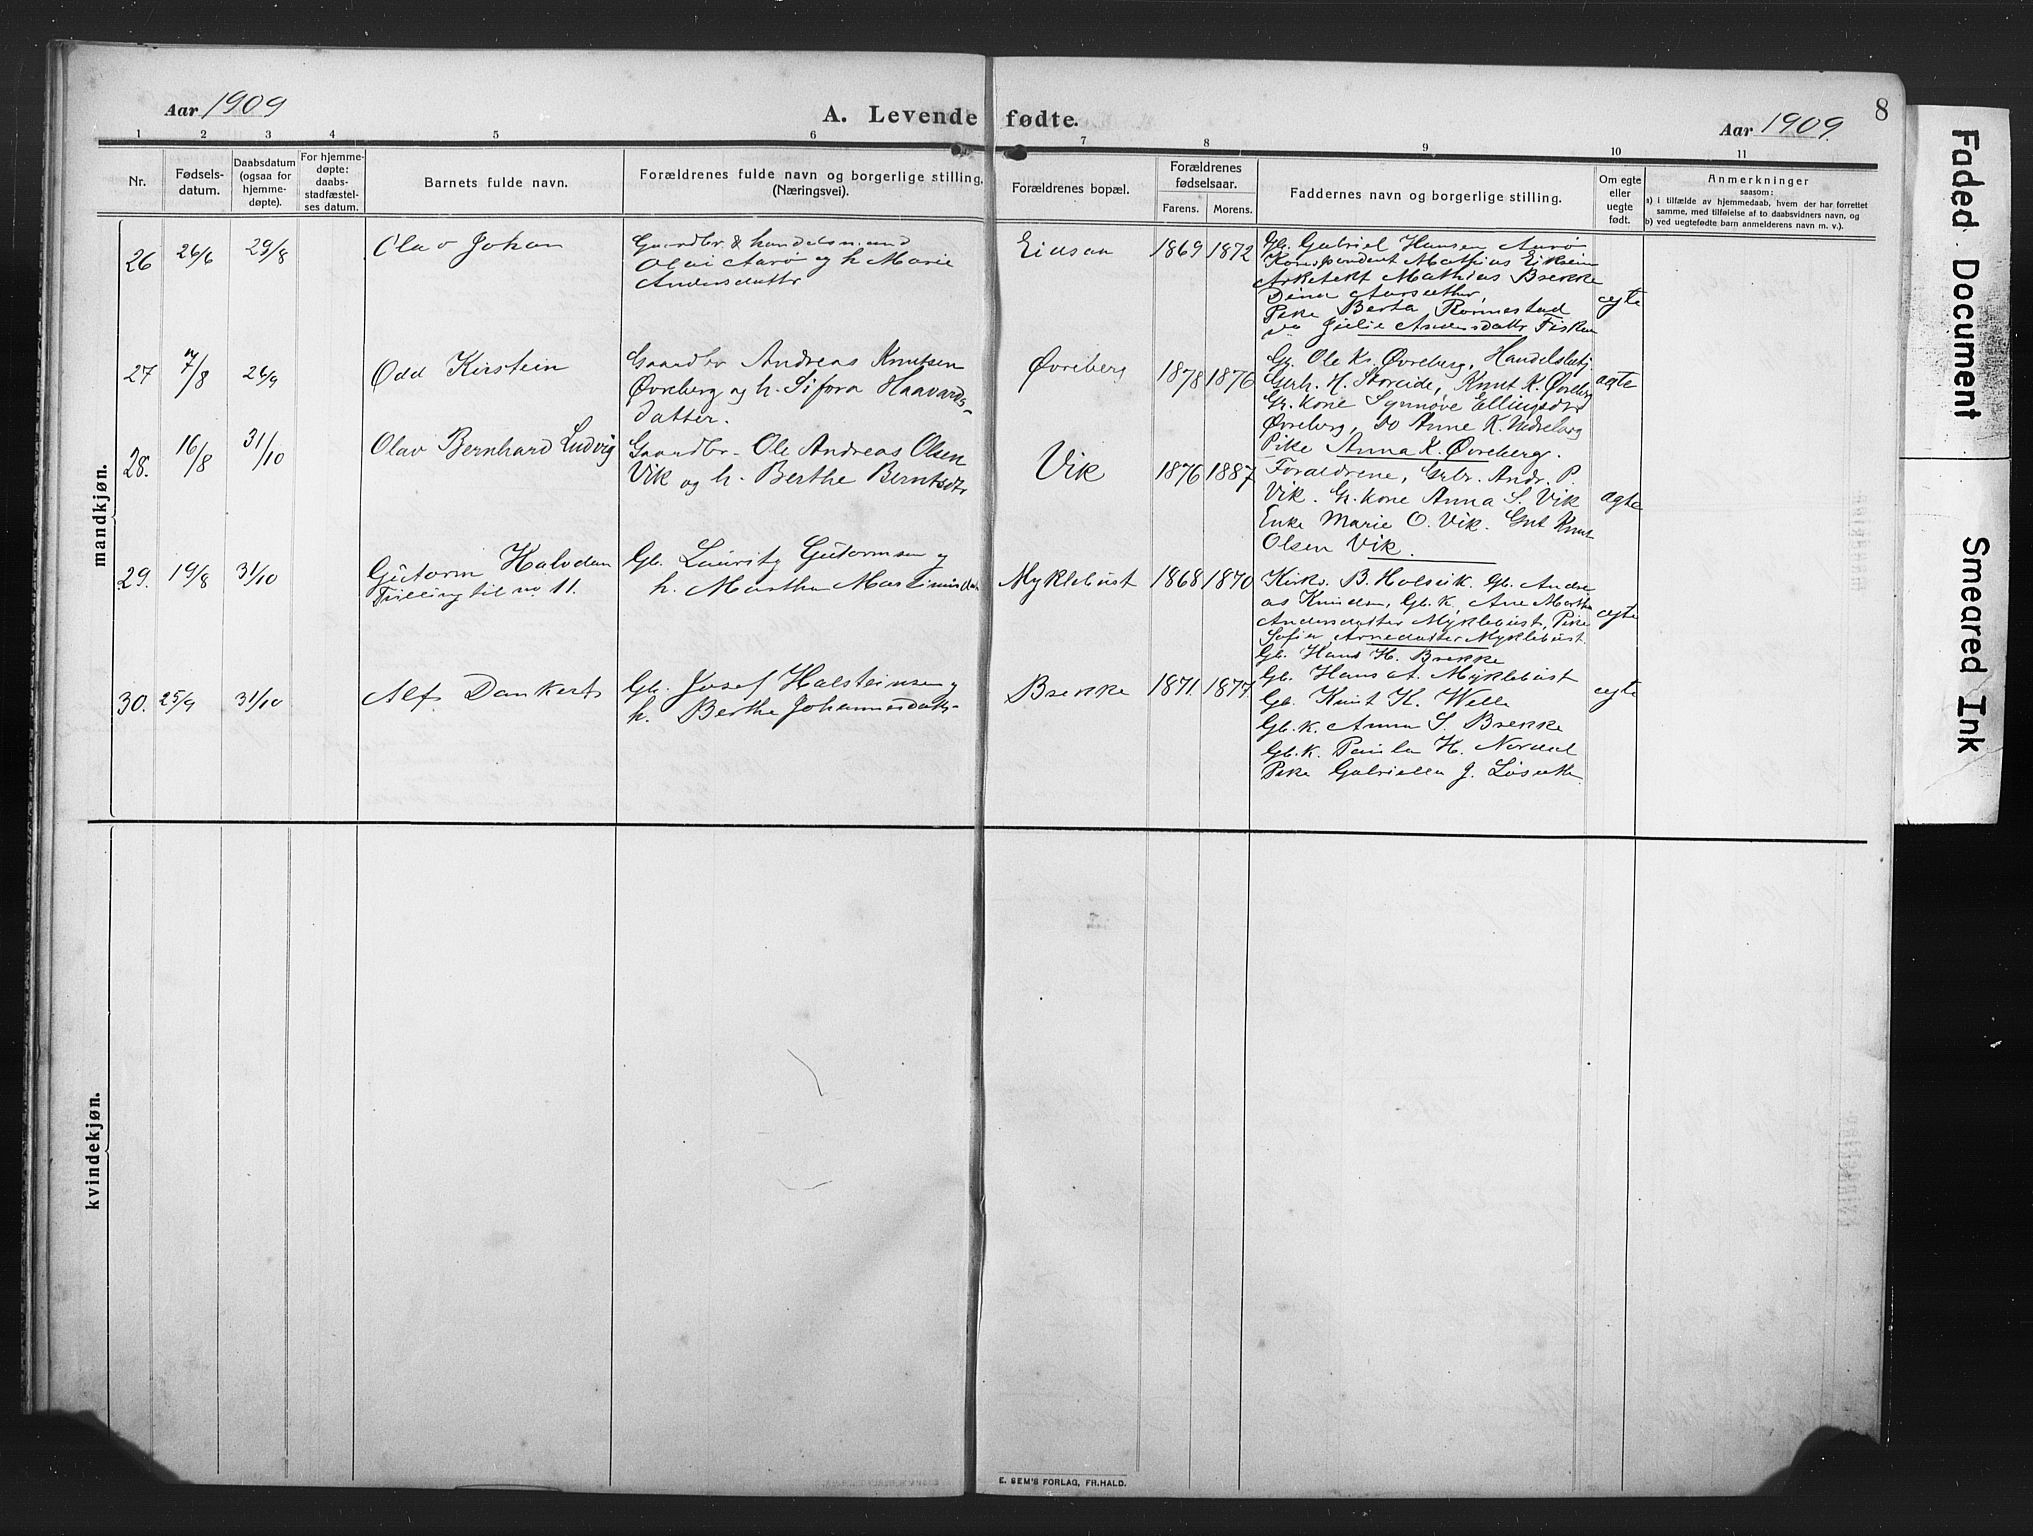 Aar 1909
A. Levende fødte.
Aar 1909.
8
1 2 3 4 5 6 7 8 9 10 11
Nr.
Fødsels-
datum.
Daabsdatum
(ogsaa for
hjemme-
døpte).
For hjemme-
døpte:
daabs-
stadfæstel-
ses datum.
Barnets fulde navn.
Forældrenes fulde navn og borgerlige stilling.
(Næringsvei).
Forældrenes bopæl.
Forældrenes
fødselsaar.
Farens. Morens.
Faddernes navn og borgerlige stilling.
Om egte
eller
uegte
født.
Anmerkninger
saasom:
a) i tilfælde av hjemmedaab, hvem der har forrettet
samme, med tilføielse af to daabsvidners navn, og
b) ved uegtefødte barn anmelderens navn m. v.).
mandkjøn.
26 26/6 29/8 Olav Johan
Gaardbr. & handelsmand
Olai Aarø og h. Marie
Andersdattr
1869 1872
Gb. Gabriel Hansen Aarø
Korrespondent Mathias Eikeim
Arkitekt Mathias Brekke
Pike Berta Rormestad
do Julie Andersdattr Fisken
egte
27 7/8 26/9 Odd Kirstein
Gaardbr Andreas Knutsen
Øvreberg og h. Sifora Haavards-
datter.
Øvreberg 1878 1876
Gr. Ole Kr. Øvreberg, Handelsbetj.
Gerh. H. Storeide, Knut K. Øvreberg
Gr. kone Synnøve Ellingsdtr
Øvreberg, do Anne K. Nedreberg
Pike Anna K. Øvreberg.
ægte
28. 16/8 31/10 Olav Bernhard Ludvig
Gaardbr. Ole Andreas Olsen
Vik og h. Berthe Berntsdtr
Vik 1876 1887
Foraldrene, Grbr. Andr. P.
Vik. Gr. kone Anna S. Vik
Enke Marie O. Vik. Gut Knut
Olsen Vik.
ægte
29. 19/8 31/10 Gutorm Halvdan
Tvilling til no 11.
Gb. Lauritz Gutormsen og
h. Marthe
Myklebust 1868 1870
Kirks. B. Holsvik. Gb. Andre
as Knudsen, Gb.k. Ane Marthe
Andersdatter Myklebust, Pike
Sofie Arnedatter Myklebust.
Gb. Hans H. Brekke
egte
30. 25/9 31/10 Alf Dankert
Gb. Josef Halsteinsen og
h. Berthe Johannesdattr
Brekke 1871. 1877
Gb. Hans A. Myklebust
Gb. Knut K. Welle
Gb.k. Anna S. Brekke
Gb.k. Paula H. Nordal
Pike Gabriella J. Løseth
egte
kvindekjøn.
E. SEM'S FORLAG, FR.HALD.
Faded Document
Smeared Ink